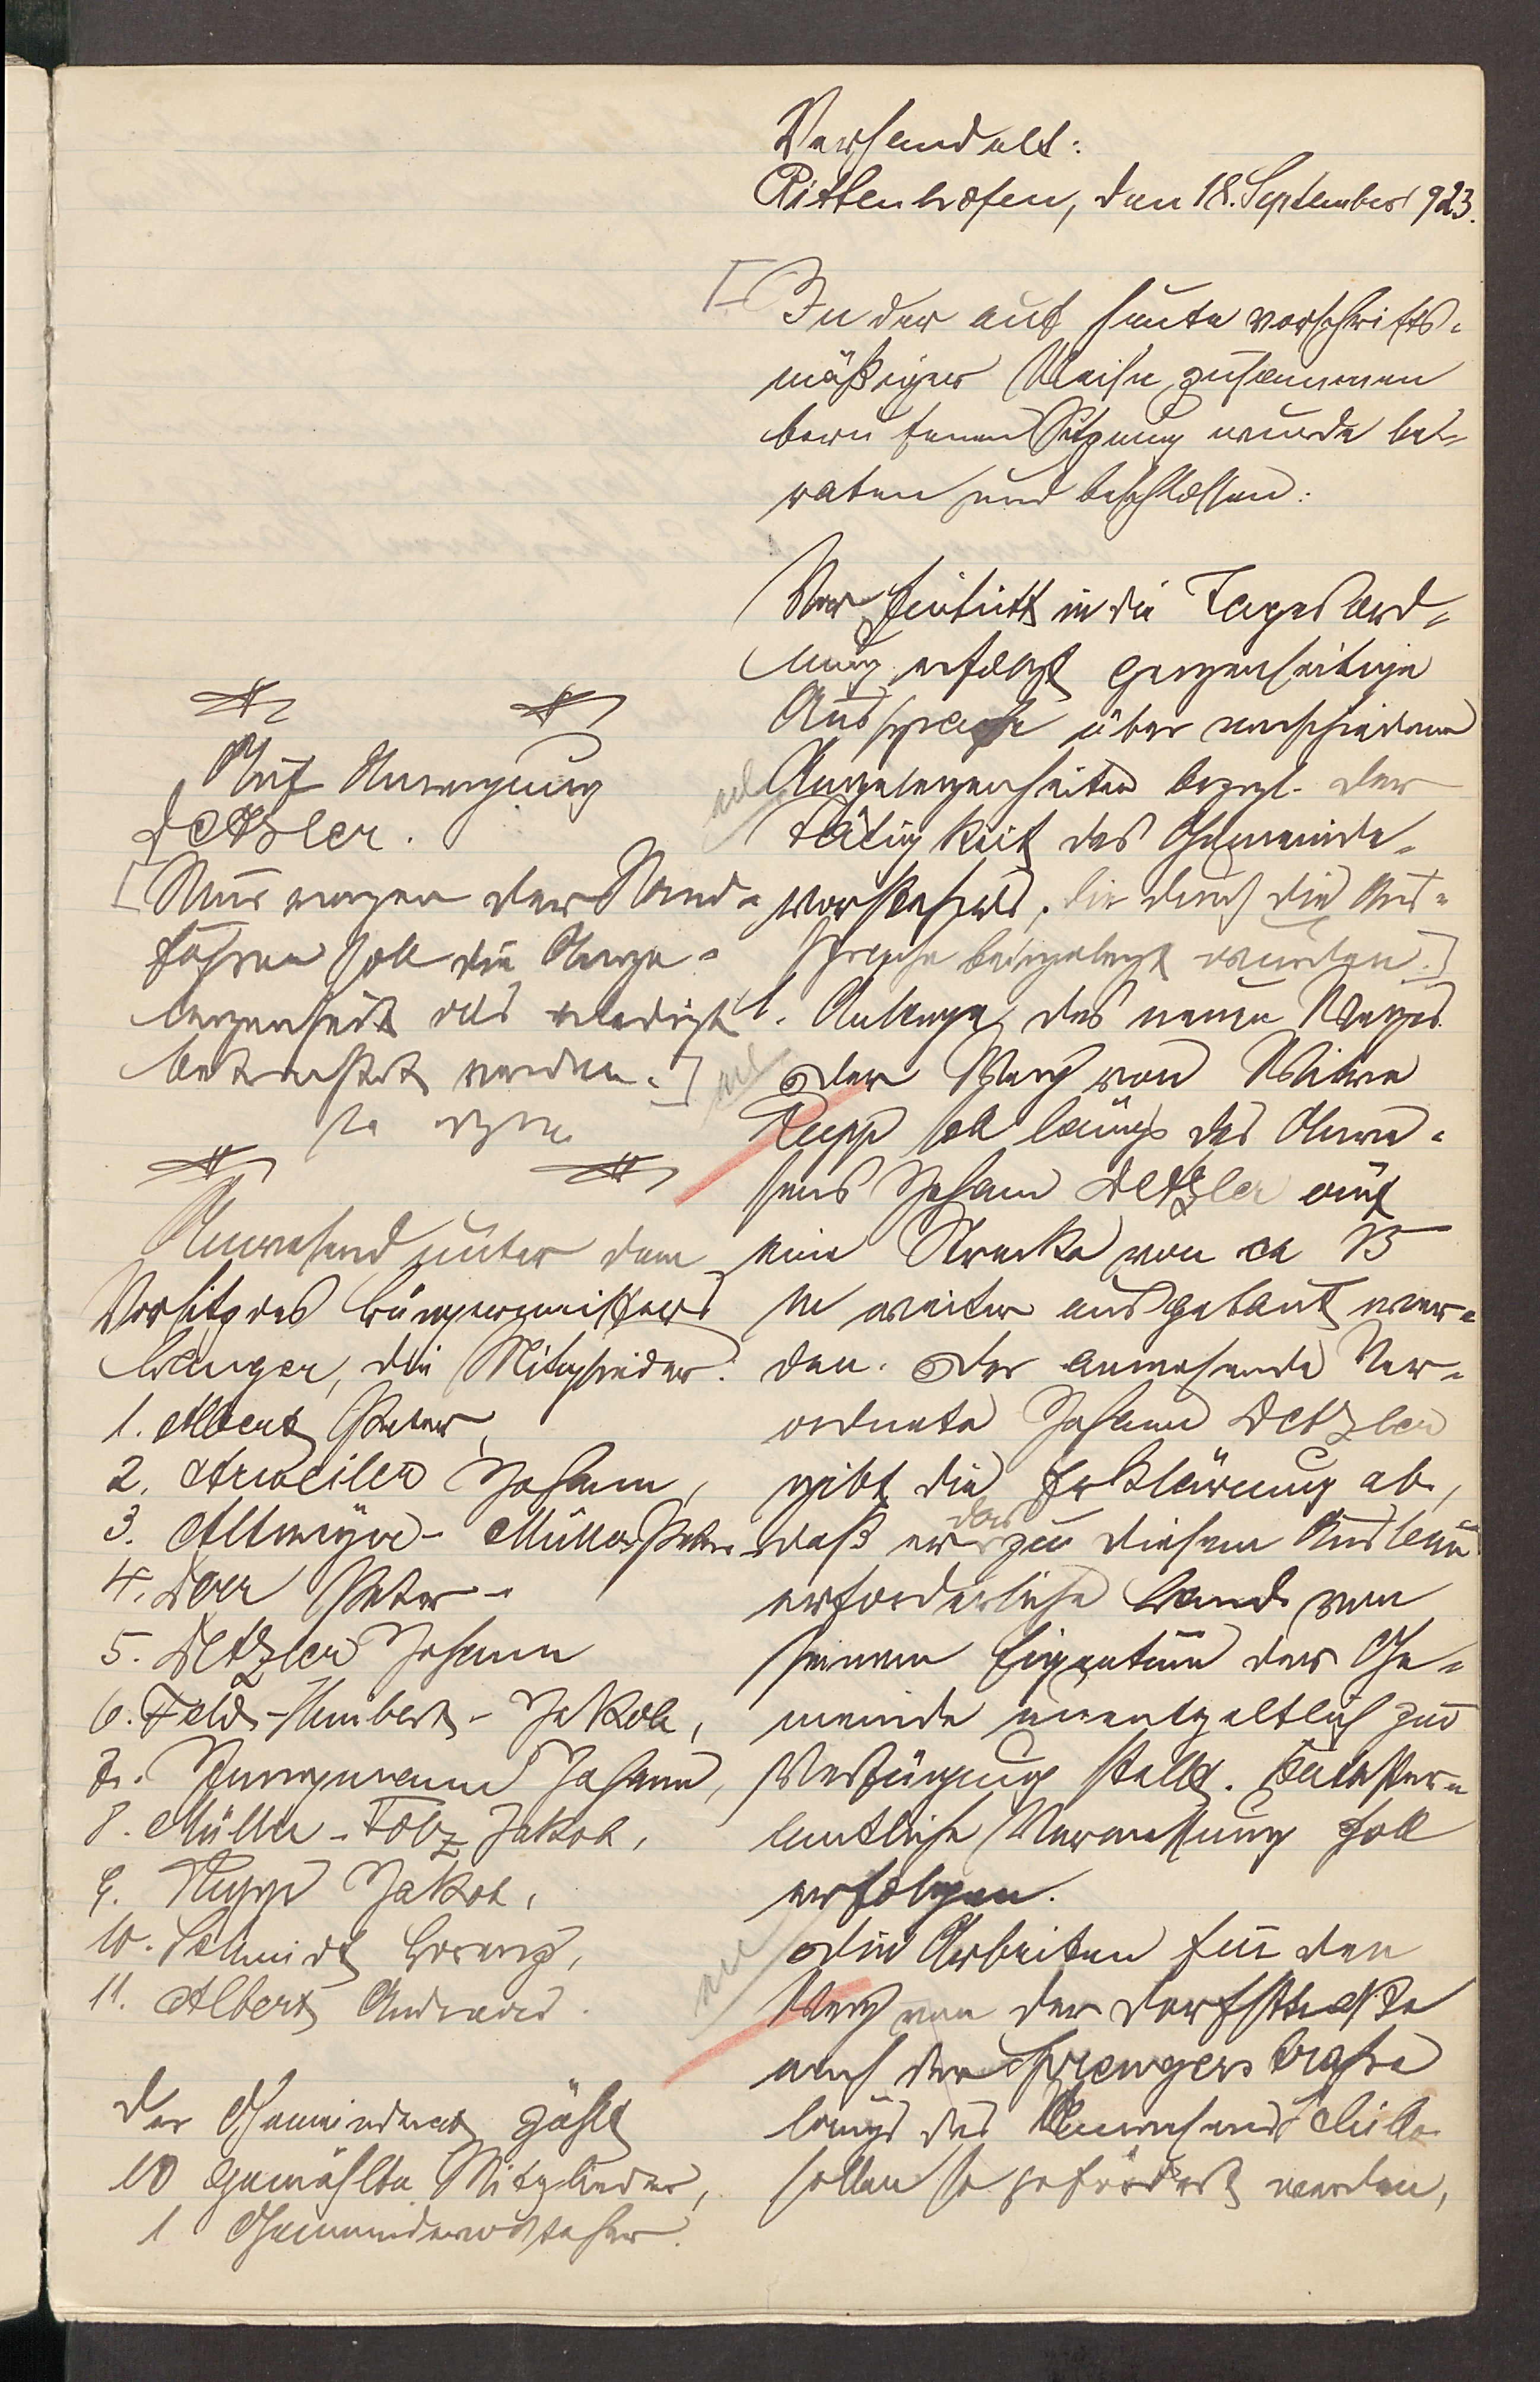 Verhandelt:
Rittenhofen, den 18. September 1923.
In der auf heute vorschrifts-
mäßiger Weise zusammen
berufenen Sitzung wurde be-
raten und beschlossen:
Vor Eintritt in die Tagesord-
nung erfolgt gegenseitige
Aussprache über verschiedene
Angelegenheiten bezgl. der
Tätigkeit des Gemeinde-
vorstehers, die durch die Aus-
sprache beigelegt wurden.
1. Anlage des neuen Weges
Der Weg von Witwe
Rupp soll längs des Anwe-
sens Johann Detzler auf
eine Strecke von ca 15
m weiter ausgebaut wer-
den. Der anwesende Ver-
ordnete Johann Detzler
gibt die Erklärung ab,
daß er das zu diesem Ausbau
erforderliche Land von
seinem Eigentum der Ge-
meinde unentgeltlich zur
Verfügung stellt. Kataster-
amtliche Vermessung soll
erfolgen.
Die Arbeiten für den
Weg von der Dorfstraße
nach der Sprengerstraße
längs des Anwesens Müller
sollen so gefördert werden,
Auf Anregung
Detzler.
Nur wegen der
soll die Ange-
legenheit als erledigt
betrachtet werden.
Anwesend unter dem
Vorsitz des Bürgermeisters
Langer, die Mitglieder:
1. Albert Peter,
2. Arweiler Johann,
3. Altmeyer-Müller Peter
4. Dörr Peter
5. Detzler Johann
6. Feld-Humbert-Jakob,
7. Jungmann Johann,
8. Müller-Folz Jakob,
9. Rupp Jakob,
10. Schmidt Lorenz,
11. Albert Andreas.
Der Gemeinderat zählt
10 gewählte Mitglieder,
1 Gemeindevorsteher.